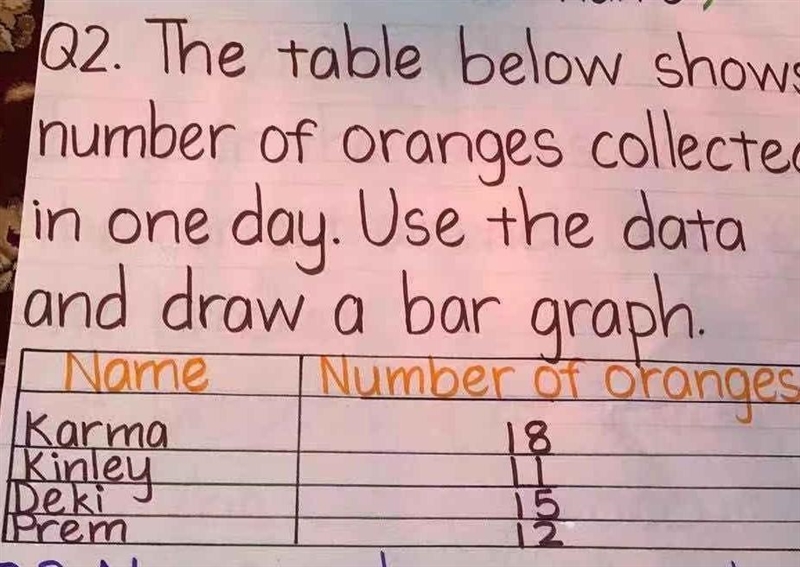 Q2. The table below shows
number of oranges collected
in one day. Use the data
and draw a bar graph.
Name Number of oranges
Karma 18
Kinley 11
Deki 15
Prem 12